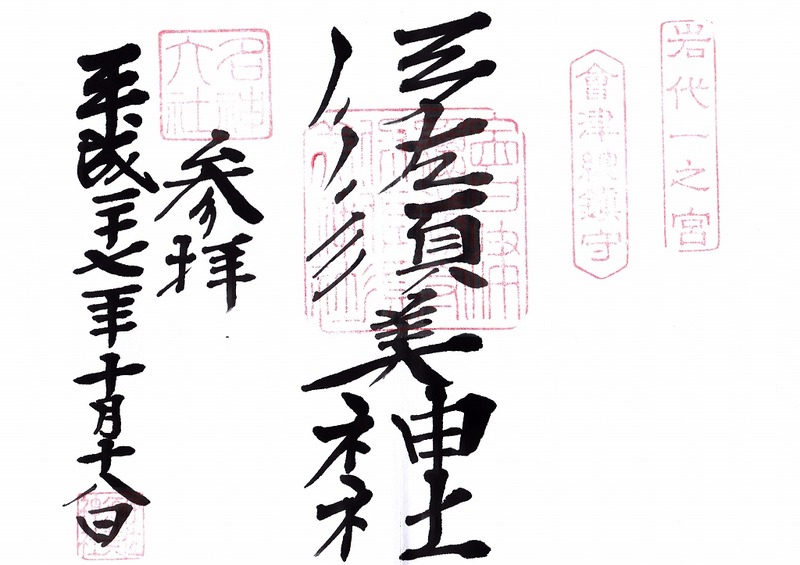 岩代一之宮
會津總鎮守
伊佐須美神社
名神大社
参拝
平成二十七年十月十八日